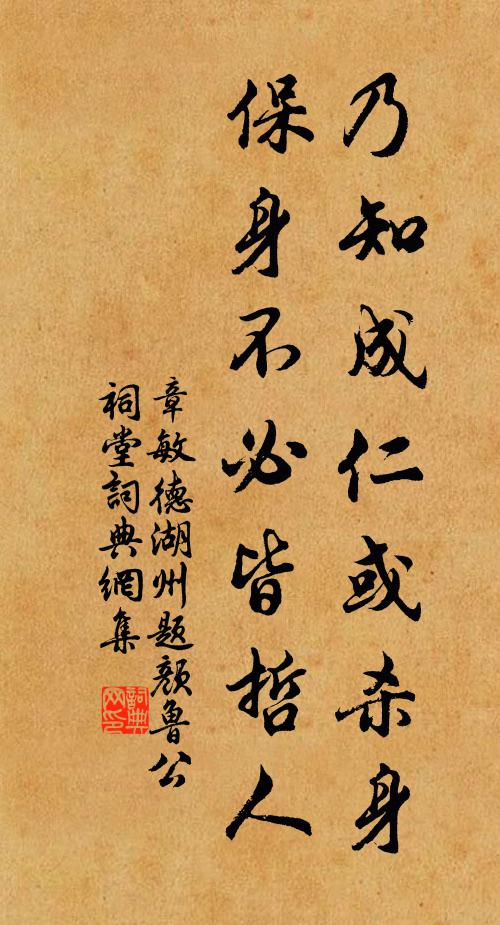 乃知成仁或杀身
保身不必皆哲人
章敏德湖州题颜鲁公
祠堂詞典網集
詞典
网印